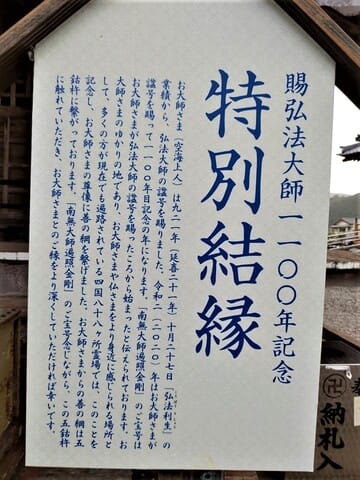 賜弘法大師一一〇〇年記念
特別結縁
お大師さま（空海上人）は九二一年（延喜二十一年）十月二十七日「弘法利生」の
業績から、弘法大師の諡号を賜りました。令和二（二〇二〇）年はお大師さまが
諡号を賜って一一〇〇年目記念の年になります。「南無大師遍照金剛」のご宝号は
お大師さまが弘法大師の諡号を賜ったころから始まったと伝えられております。お
大師さまのゆかりの地であり、お大師さまや仏さまをより身近に感じられる場所と
して、多くの方が現在でも遍路されている四国八十八ヶ所霊場では、このことを
記念し、お大師さまの尊像に善の綱を繋げました。お大師さまからの善の綱は五
鈷杵に繋がっております。「南無大師遍照金剛」のご宝号念じながら、この五鈷杵
に触れていただき、お大師さまとのご縁をより深くしていただければ幸いです。
卍納札入